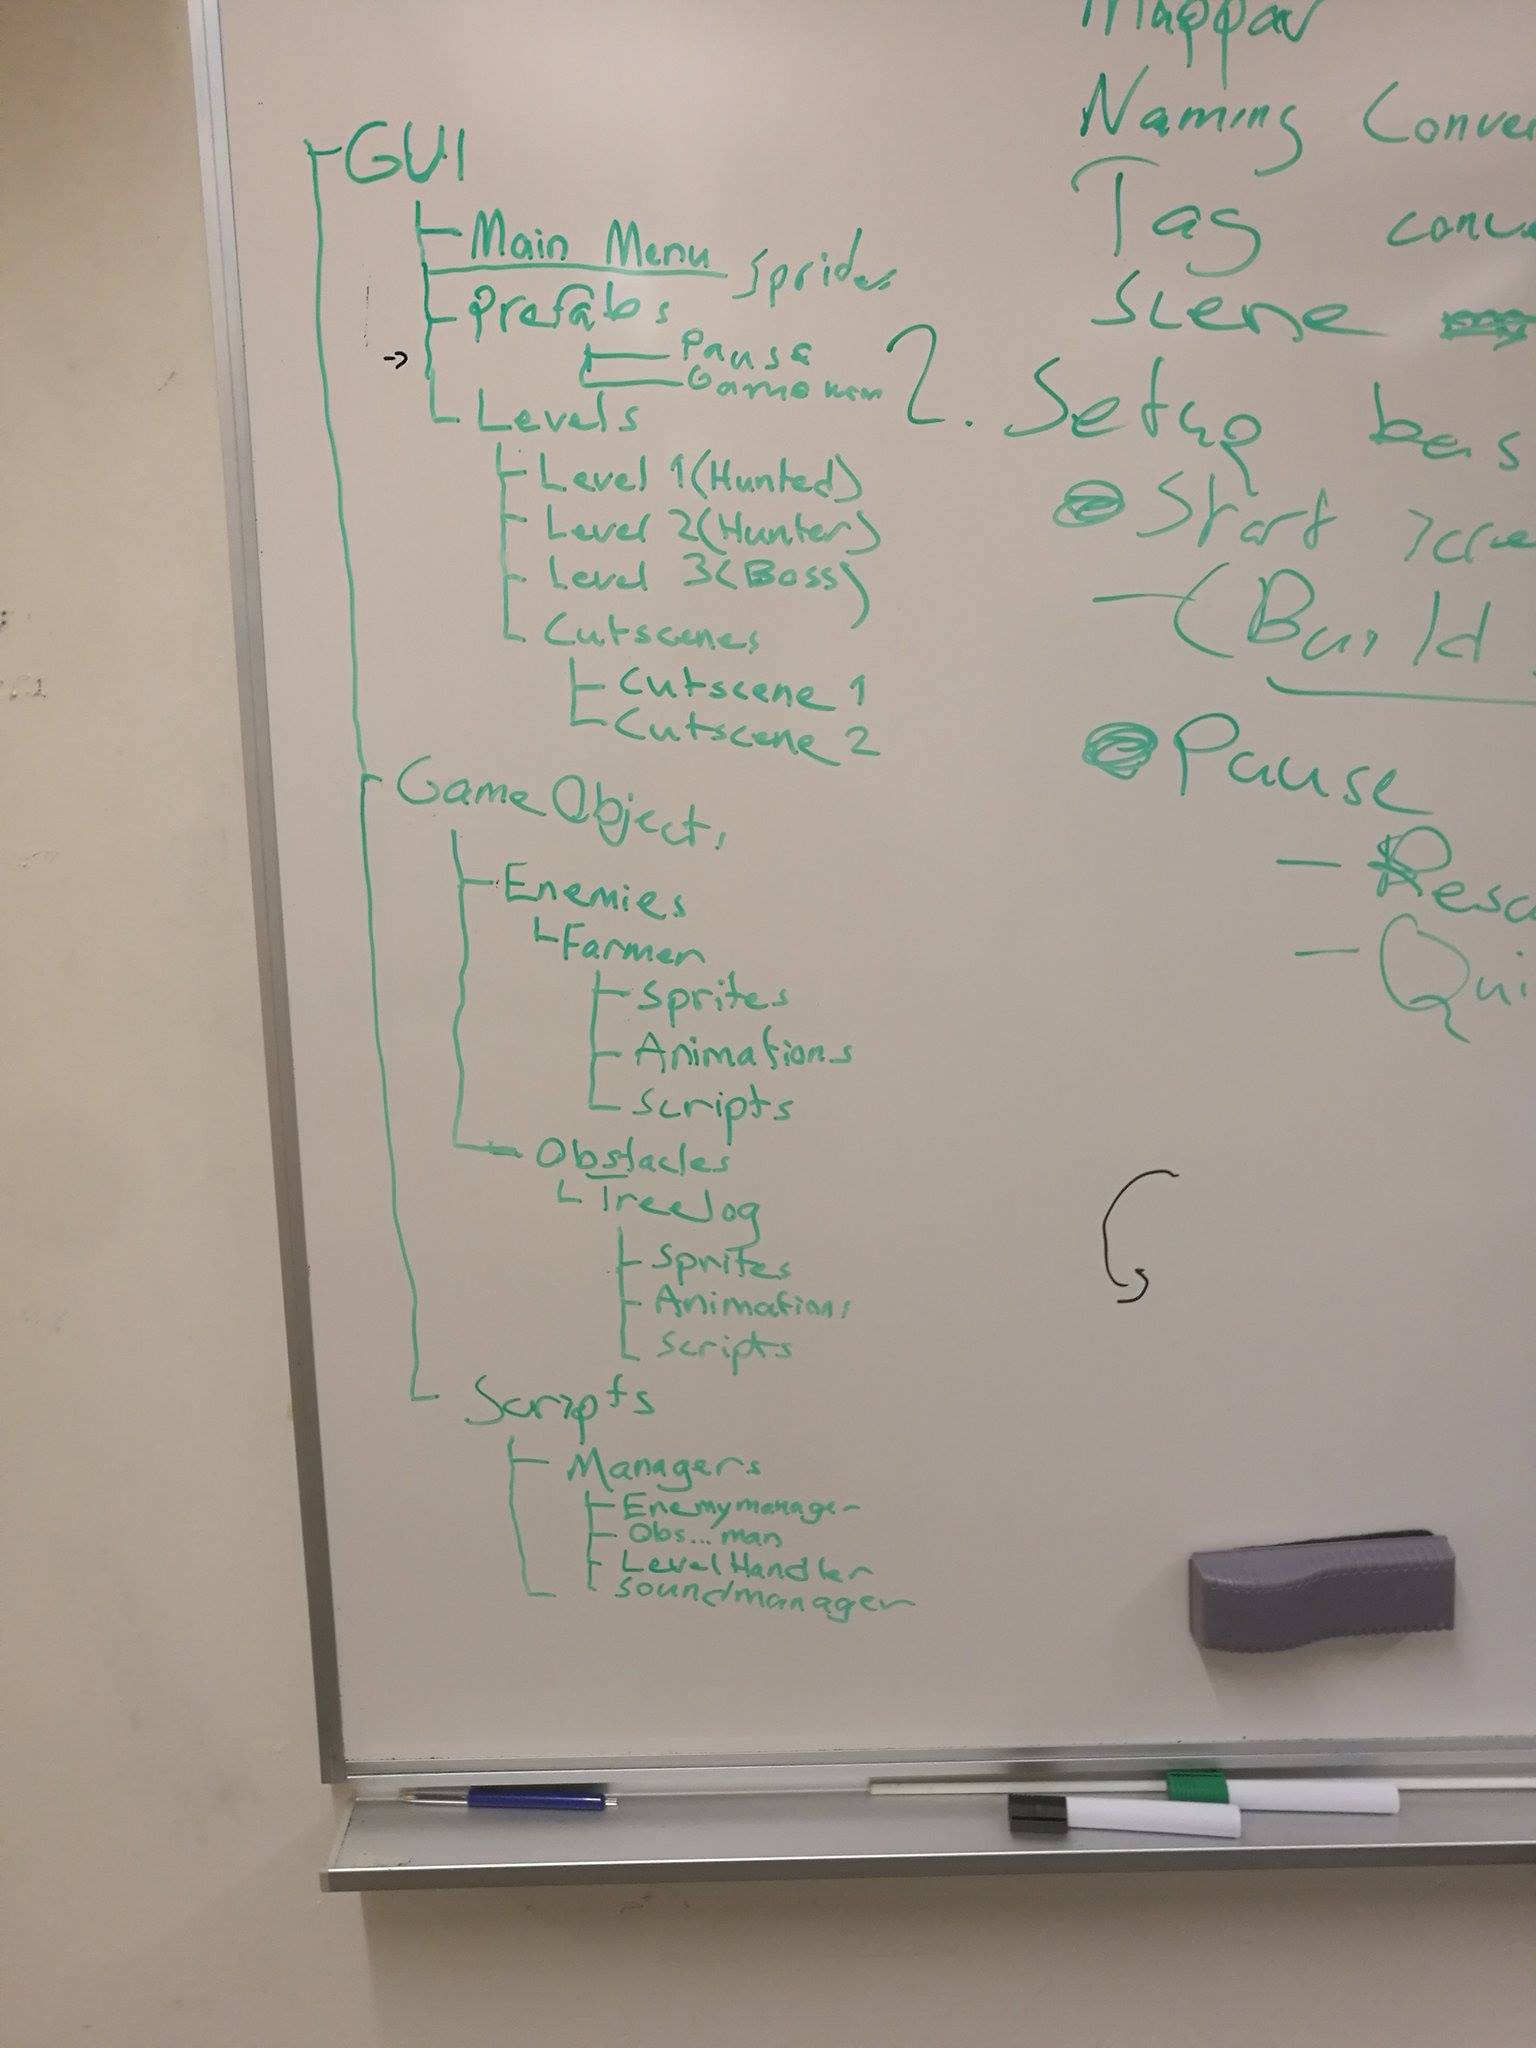 GUI
Main Menu
Sprides
Prefabs
Pause
Levels
Level 1 (Hunted)
Level 2 (Hunter)
Level 3 (Boss)
Cutscenes
Cutscene 1
Cutscene 2
GameObjects
Enemies
Farmer
Sprites
Animations
Scripts
Obstacles
Treelog
Sprites
Animations
Scripts
Scripts
Managers
Enemymanager
Obs...man
LevelHandler
Soundmanager
Mappar
Naming Conve
Tag conv
Scene
2. Setup bas
Start scree
- (Build
Pause
- Resu
- Qui